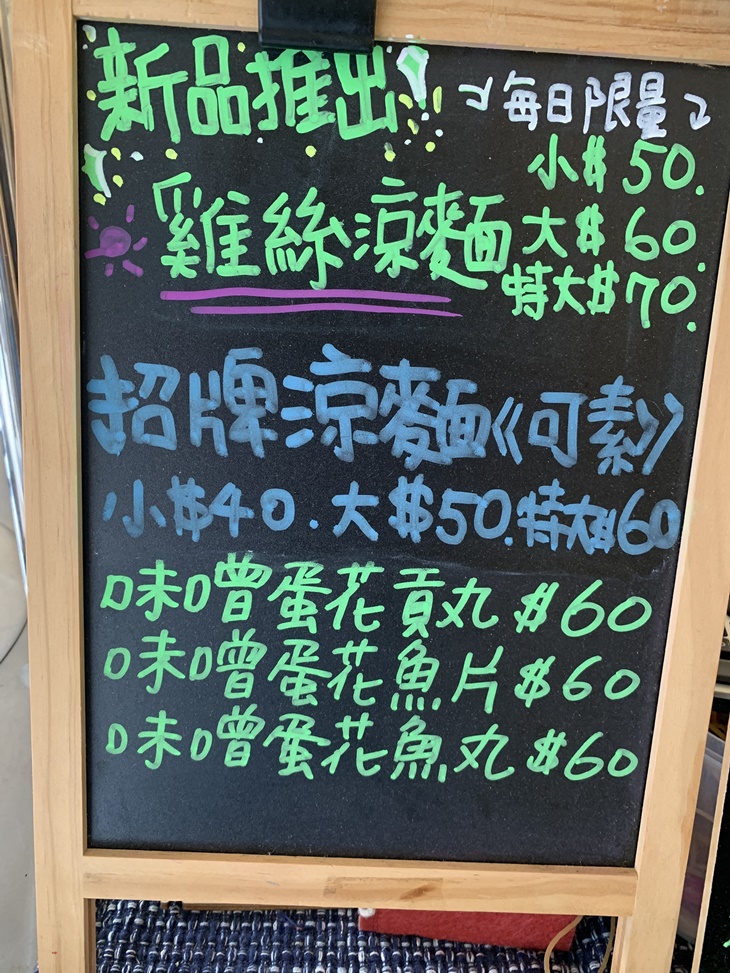 新品推出 每日限量
小$50.
雞絲涼麵 大$60.
特大$70.
招牌涼麵《可素》
小$40.大$50.特大$60
味噌蛋花貢丸$60
味噌蛋花魚片$60
味噌蛋花魚丸$60